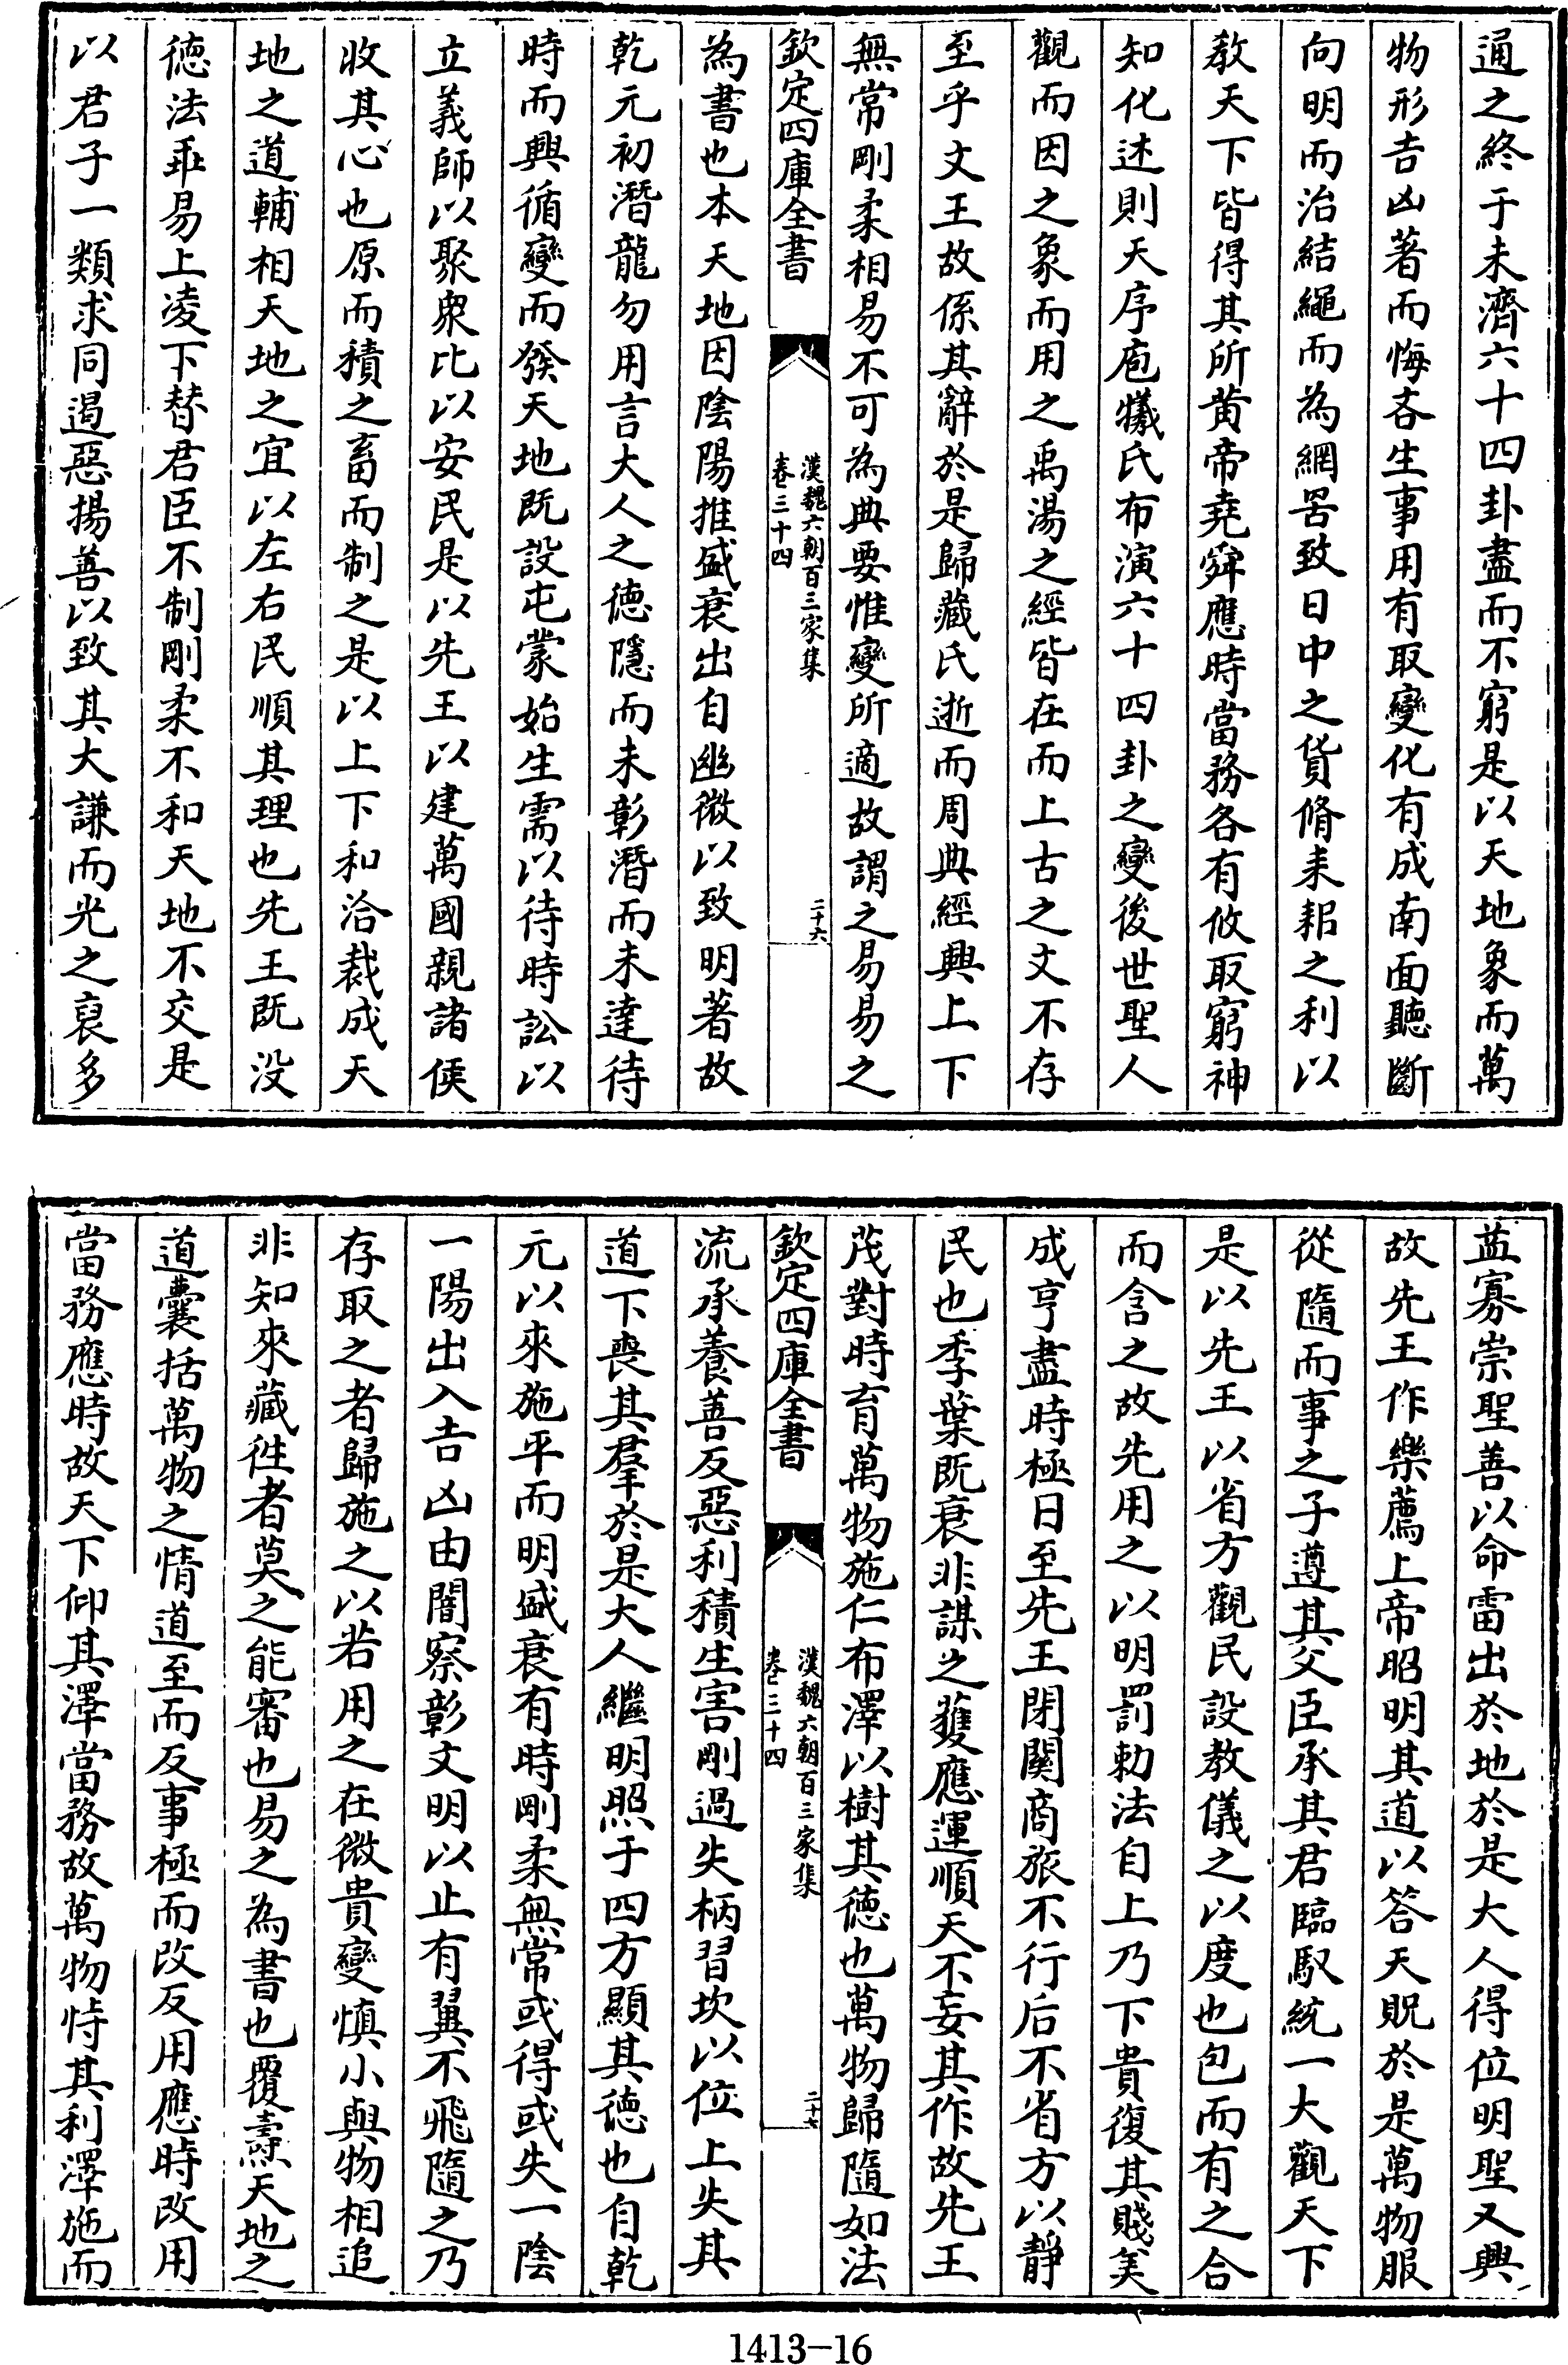 通之終于未濟六十四卦盡而不窮是以天地象而萬
物形吉凶著而悔吝生事用有取變化有成南面聽斷
向明而治結繩而為網罟致日中之貨脩耒耜之利以
教天下皆得其所黄帝堯舜應時當務各有攸取窮神
知化述則天序庖犧氏布演六十四卦之變後世聖人
觀而因之象而用之禹湯之經皆在而上古之文不存
至乎文王故係其辭於是歸藏氏逝而周典經興上下
無常剛柔相易不可為典要惟變所適故謂之易易之
欽定四庫全書
漢魏六朝百三家集
卷三十四
二十六
為書也本天地因陰陽推盛衰出自幽微以致明著故
乾元初潛龍勿用言大人之徳隱而未彰潛而未達待
時而興循變而發天地既設屯蒙始生需以待時訟以
立義師以聚衆比以安民是以先王以建萬國親諸侯
收其心也原而積之畜而制之是以上下和洽裁成天
地之道輔相天地之宜以左右民順其理也先王既没
徳法乖易上凌下替君臣不制剛柔不和天地不交是
以君子一類求同遏惡揚善以致其大謙而光之裒多
益寡崇聖善以命雷出於地於是大人得位明聖又興
故先王作樂薦上帝昭明其道以答天貺於是萬物服
從隨而事之子遵其父臣承其君臨馭統一大觀天下
是以先王以省方觀民設教儀之以度也包而有之合
而含之故先用之以明罰勅法自上乃下貴復其賤美
成亨盡時極日至先王閉關商旅不行后不省方以靜
民也季葉既衰非謀之獲應運順天不妄其作故先王
茂對時育萬物施仁布澤以樹其徳也萬物歸隨如法
欽定四庫全書
漢魏六朝百三家集
卷三十四
二十七
流承養善反惡利積生害剛過失柄習坎以位上失其
道下喪其羣於是大人繼明照于四方顯其徳也自乾
元以來施平而明盛衰有時剛柔無常或得或失一陰
一陽出入吉凶由闇察彰文明以止有翼不飛隨之乃
存取之者歸施之以若用之在微貴變慎小與物相追
非知來藏徃者莫之能審也易之為書也覆燾天地之
道囊括萬物之情道至而反事極而改反用應時改用
當務應時故天下仰其澤當務故萬物恃其利澤施而
1413-16